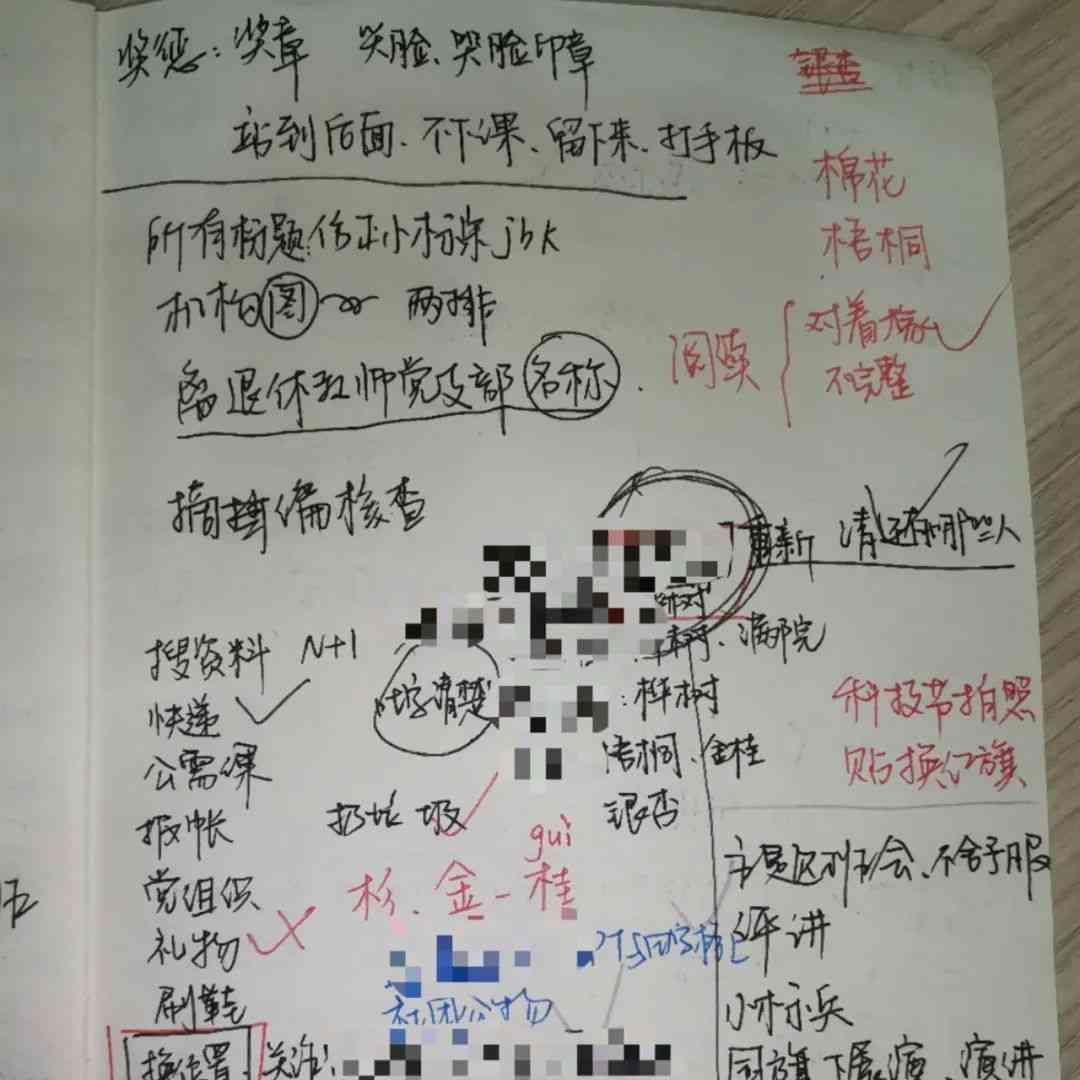 奖惩：奖章 笑脸、哭脸印章
站到后面、不下课、留下来、打手板
银杏
棉花
梧桐
所有标题仿宋小标宋 jbk
机构图 两排
离退休教师党支部名称
阅读 对着
不完整
摘 编核查
重新 清 还有哪些人
树
搜资料 N+1
清楚
桦树
快递
梧桐、金桂
公需课
银杏
报帐
扔垃圾
科技节拍照
贴换红旗
gui
党组织
杉、金-桂
礼物
班会、不舍予服
评讲
刷鞋
社团
小标兵
换位置 关注：
国旗下展演、演讲